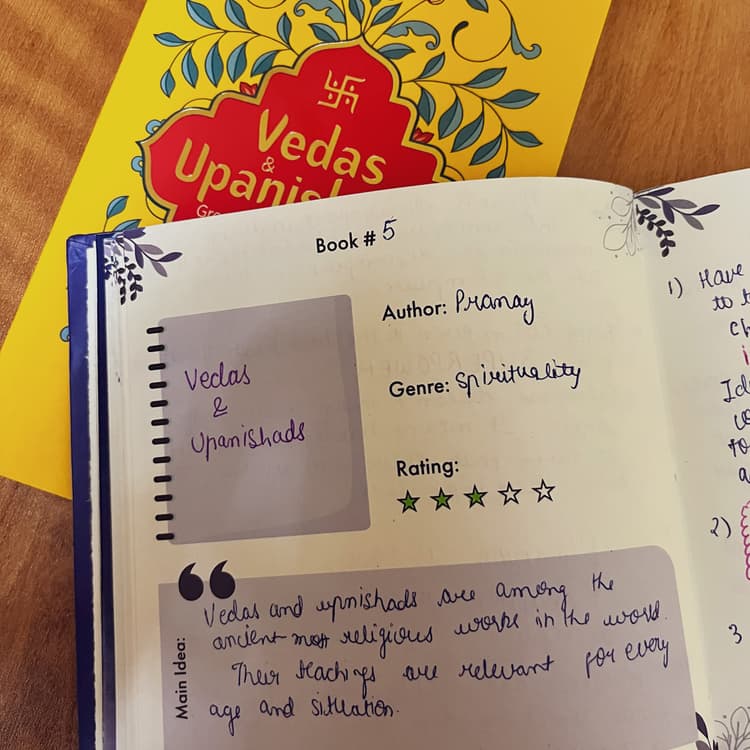 Vedas
&
Upanish
Gre
Book # 5
Author: Pranay
Genre: Spirituality
Rating:
Vedas
&
Upanishads
Main Idea:
Vedas and upnishads are among the
ancient most religious works in the world.
Their teachings are relevant for every
age and situation.
1) Have
to t
2)
3